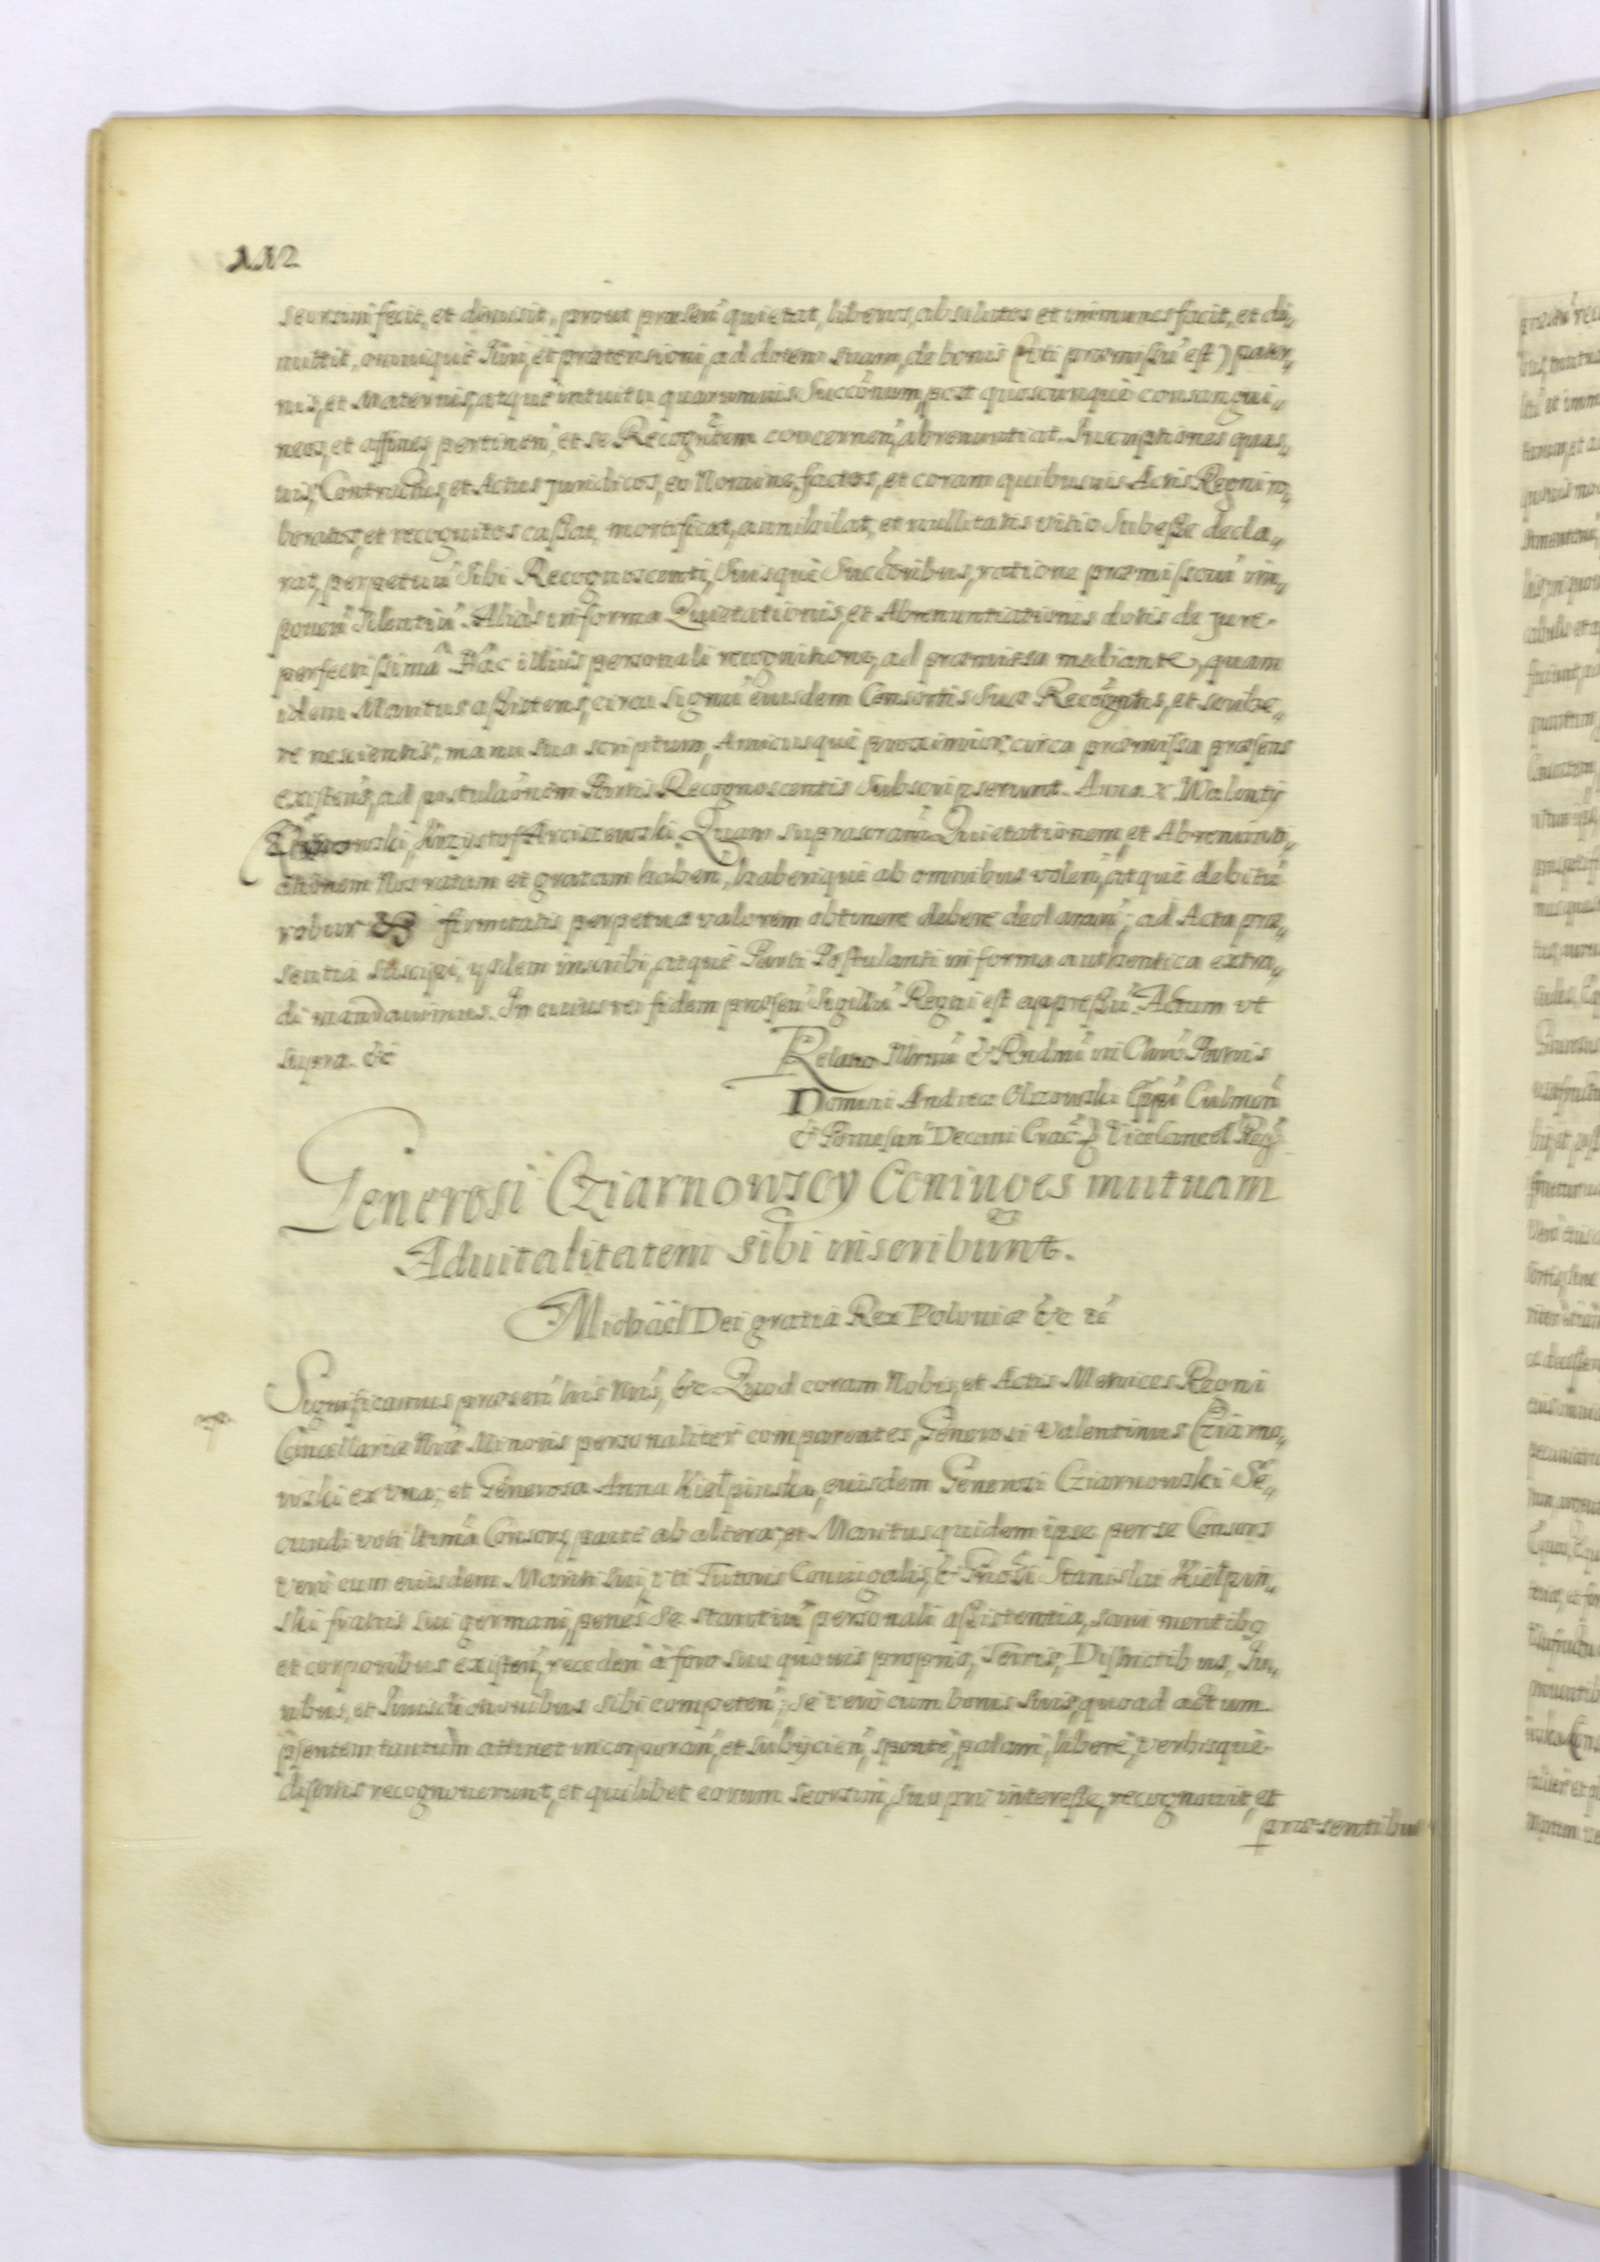 seorsim fecit, et dimisit, prout præsen̄ quietat, liberos, absolutos et immunes facit, et di„
mittit, omniquè Juri, et prætensioni, ad dotem suam, de bonis (uti præmissū est) pater„
nis, et Maternis, atquè intuitu quarumuis Succōnum, post quoscunquè consangui„
neos, et affines pertinen̄, et se Recogn̄tem concernen̄, abrenuntiat. Inscriptiones quas„
uis, Contractus, et Actus juridicos, eo Nomine, factos, et coram quibusuis Actis Regni ro„
boratos, et recognitos cassat, mortificat, annihilat, et nullitatis vitio Subesse decla„
rat, perpetuū Sibi Recognoscenti, Suisquè Succōribus, ratione præmissorū im„
ponen̄ Silentiū. Aliàs in forma Quietationis, et Abrenuntiationis dotis de jure
perfectissimâ. Hâc illius personali recognitione, ad præmissa mediante, quam
idem Maritus assistens, circa Signū eiusdem Consortis Suæ Recogn̄tis, et scribe„
re nescientis, manu sua scriptum, Amicusquè proximior, circa præmissa præsens
existens, ad postulaōnem Partis Recognoscentis Subscripserunt. Anna X Walenty
Krzysztof Arciszewski. Quam suprascrām Quietationem, et Abrenunti„
ationem Nos ratam et gratam haben̄, haberiquè ab omnibus volen̄, atquè debitū
robur & firmitatis perpetuæ valorem obtinere debere declaran̄; ad Acta præ„
sentia suscipi, ijsdem inscribi, atquè Parti Postulanti in forma authentica extra„
di mandauimus. In cuius rei fidem præsen̄ Sigillū Regni est appressū. Actum vt
supra. &c
Relatio Illrmi & Rndmi in Chrō Patris
Domini Andreæ Olszowski Eppī Culmen̄
& Pomesan̄ Decani Crac̄ Vicecancel Regn̄
Generosi Cziarnowscy Coniuges mutuam
Aduitalitatem sibi inscribunt.
Michaël Dei gratia Rex Poloniæ &c &c
Significamus præsen̄ lris Nris, &c Quod coram Nobis, et Actis Metrices Regni
Cancellariæ Nræ Minoris personaliter comparentes, Generosi Valentinus Cziarno„
wski ex vna, et Generosa Anna Kiełpinska, eiusdem Generosi Cziarnowski Se„
cundi voti ltima Consors, parte ab altera, et Maritus quidem ipse per se Consors
verò cum eiusdem Mariti Sui, vti Tutoris Coniugalis, & Gnosi Stanislai Kiełpin„
ski fratris sui germani, penes Se stantiū personali assistentia, sani mentibq
et corporibus existen̄, receden̄ à foro suo quouis proprio, Terris, Districtibus, Ju„
ribus, et Iurisdictionibus sibi competen̄; se verò cum bonis Suis, quoad actum
p̄sentem tantùm attinet incorporan̄, et Subijcien̄, spontè, palàm, liberè, verbisquè
disertis recognouerunt, et quilibet eorum seorsim, Suo prō interesse, recognouit, et
præsentibus